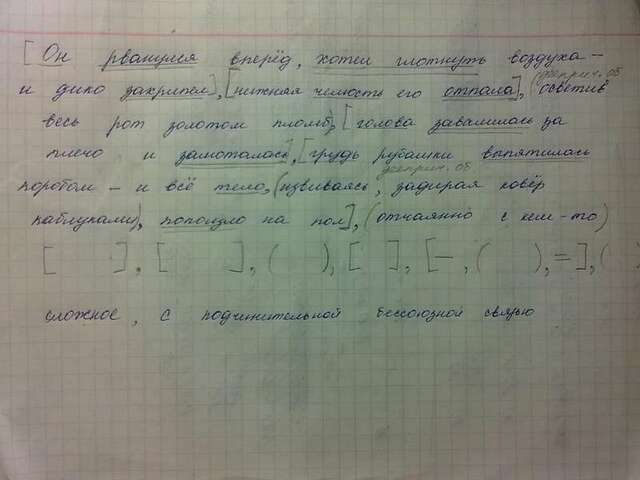 [Он рванулся вперёд, хотел глотнуть воздуха –
и дико захрипел], [нижняя челюсть его отпала], (осветив
дееприч. об
весь рот золотом пломб), [голова завалилась за
плечо и замоталась], [грудь рубашки выпятилась
дееприч. об.
коробом – и всё тело, (извиваясь, задирая ковёр
каблуками), поползло на пол], (отчаянно с кем-то)
[ ], [ ], ( ), [ ], [–, ( ), =], (
сложное, с подчинительной бессоюзной связью